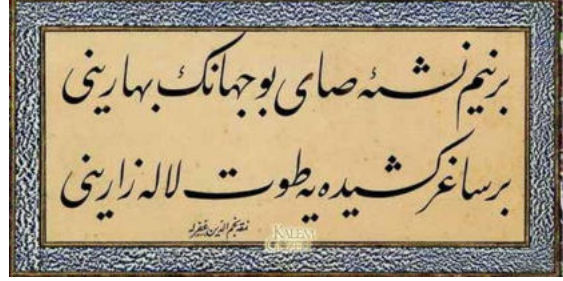 برنیم نشئه صای بو جهانك بهارینی
برساغر كشیده یه طوت لاله زارینی
نمقه نجم الدین غفرله
KALEM
GÜZELİ